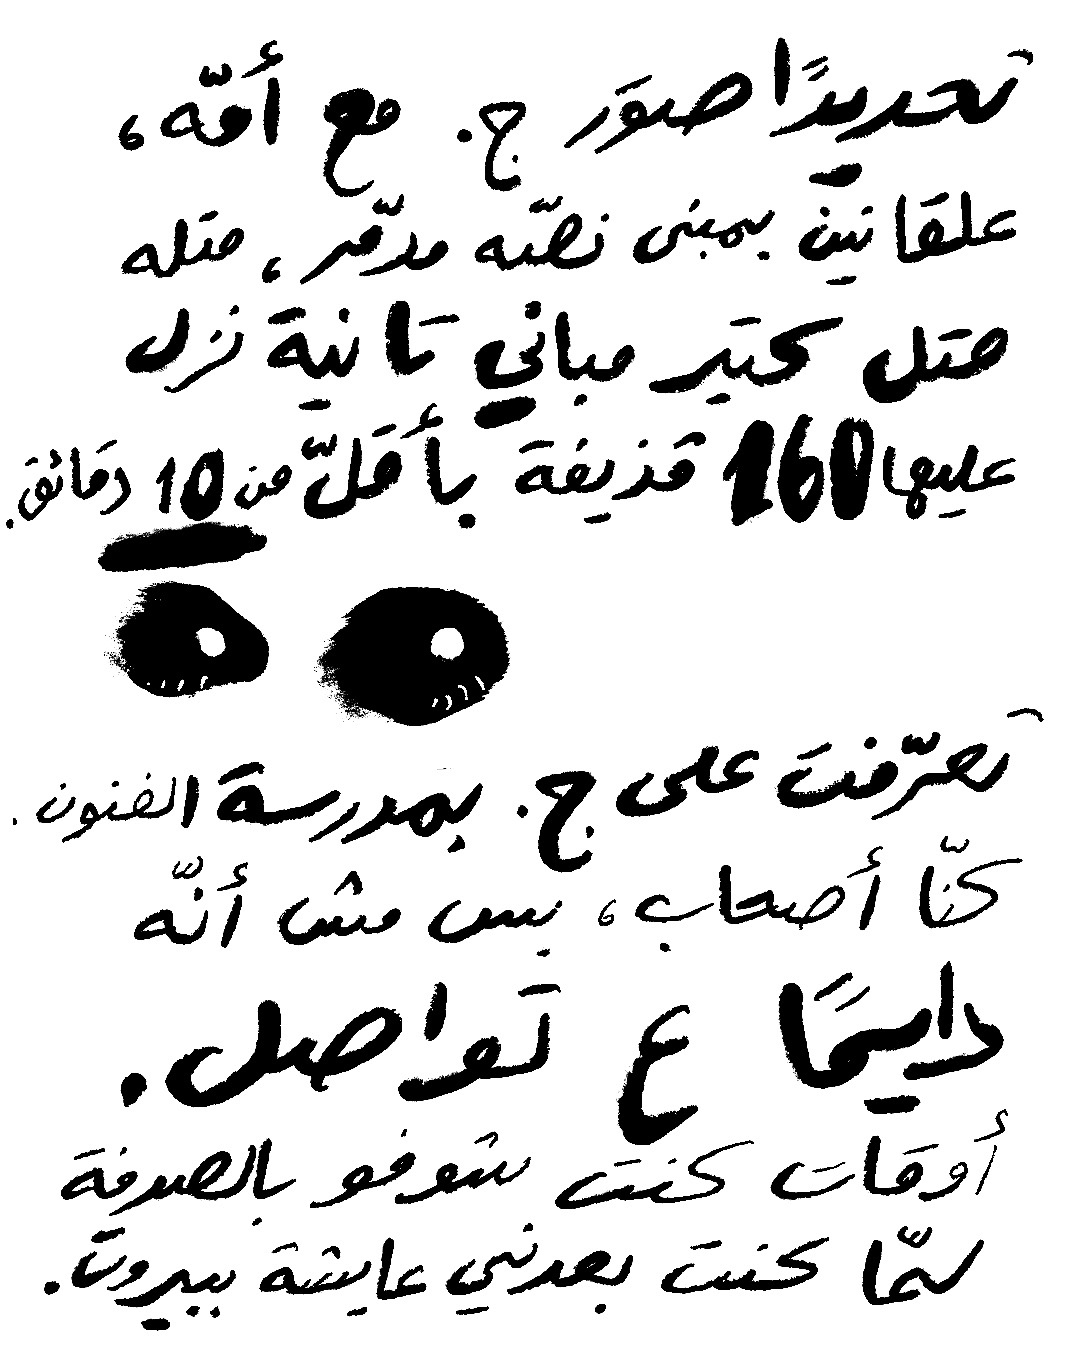 تحديدًا صوَر ج. مع أمّه،
علقانين بمبنى نصّه مدمّر، متله
متل كتير مباني تانية نزل
عليها 160 قذيفة بأقلّ من 10 دقائق.
تعرّفت على ج. بمدرسة الفنون.
كنّا أصحاب، بس مش أنّه
دايمًا ع تواصل.
أوقات كنت شوفو بالصدفة
لمّا كنت بعدني عايشة ببيروت.